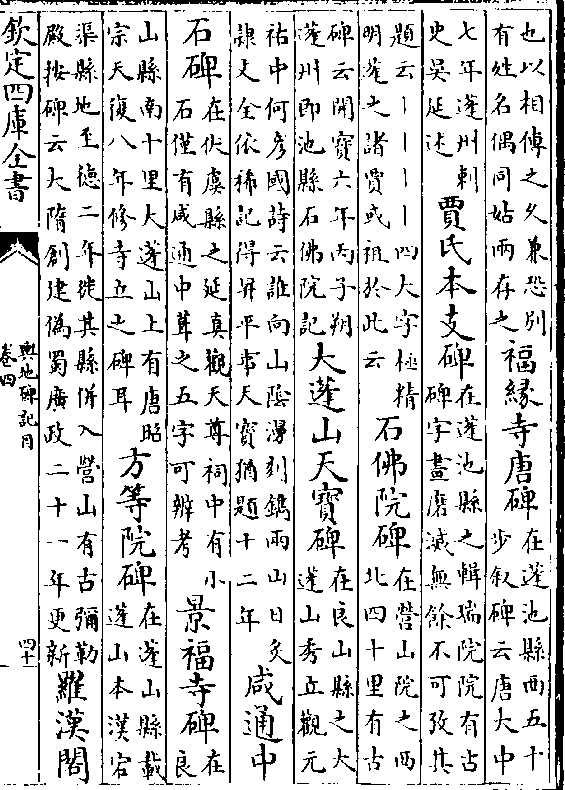 也以相傳之久兼恐別
有姓名偶同姑兩存之
福緣寺唐碑
在蓬池縣西五十
步叙碑云唐大中
七年蓬州刺
史吳延述
賈氏本支碑
在蓬池縣之輯瑞院院有古
碑字畫磨滅無餘不可攷其
題云丨丨丨丨四大字極精
明蓬之諸賈或祖於此云
石佛院碑
在營山院之西
北四十里有古
碑云開寶六年丙子朔
蓬州即池縣石佛院記
大蓬山天寶碑
在良山縣之大
蓬山秀立觀元
祐中何彥國詩云誰向山陰漫刻鐫雨山日炙
隷文全依稀記得昇平事天寶猶題十二年
咸通中
石碑
在伏虞縣之延真觀天尊祠中有小
石僅有咸通中葺之五字可辨考
景福寺碑
在
良
山縣南十里大蓬山上有唐昭
宗天復八年修寺立之碑耳
方等院碑
在蓬山縣載
蓬山本漢宕
渠縣地至德二年徙其縣併入營山有古彌勒
殿按碑云大隋創建偽蜀廣政二十一年更新
羅漢閣
欽定四庫全書
輿地碑記目
卷四
四十一